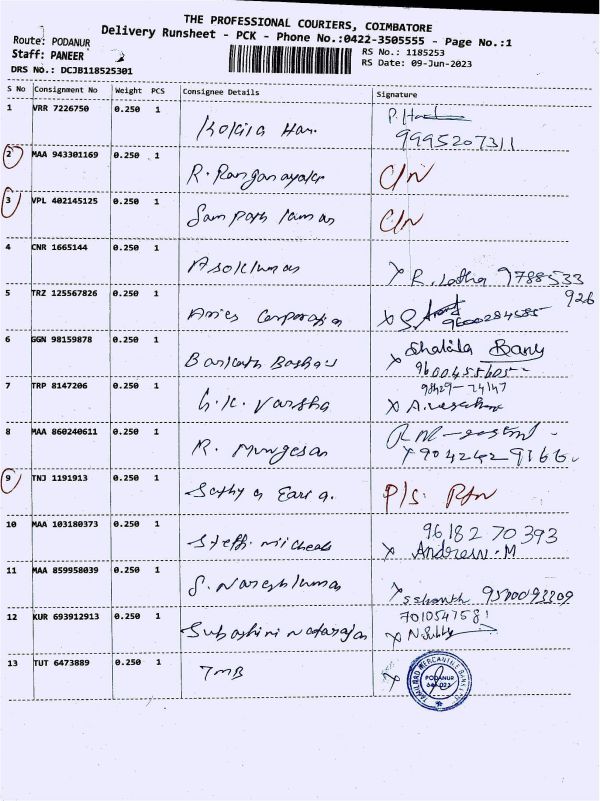 THE PROFESSIONAL COURIERS, COIMBATORE
Delivery Runsheet - PCK - Phone No.:0422-3505555 - Page No.:1
Route: PODANUR
RS No.: 1185253
Staff: PANEER
RS Date: 09-Jun-2023
DRS No.: DCJB118525301
S No Consignment No Weight PCS Consignee Details Signature
1 VRR 7226750 0.250 1 Kokila Hari
9995207311
2 MAA 943301169 0.250 1 R. Ranganayaki C/N
3 VPL 402145125 0.250 1 Sampath C/N
4 CNR 1665144 0.250 1 Asokkumar X R. Latha 9788533
926
5 TRZ 125567826 0.250 1 Aries Corporation X
9600284585
6 GGN 98159878 0.250 1 X Shakila Banu
9600455605
7 TRP 8147206 0.250 1 G.K. Varsha X
98429-74147
8 MAA 860240611 0.250 1 R. Murugesan
X 9042429166
9 TNJ 1191913 0.250 1 Sathya P/S. RTN
10 MAA 103180373 0.250 1 Steffi Micheal 9618270393
X Andrew.M
11 MAA 859958039 0.250 1 S. Nareshkumar X 9500093209
12 KUR 693912913 0.250 1 Subashini Natarajan 7010547581
X N.
13 TUT 6473889 0.250 1 TMB X
TAMILNAD MERCANTILE BANK
PODANUR